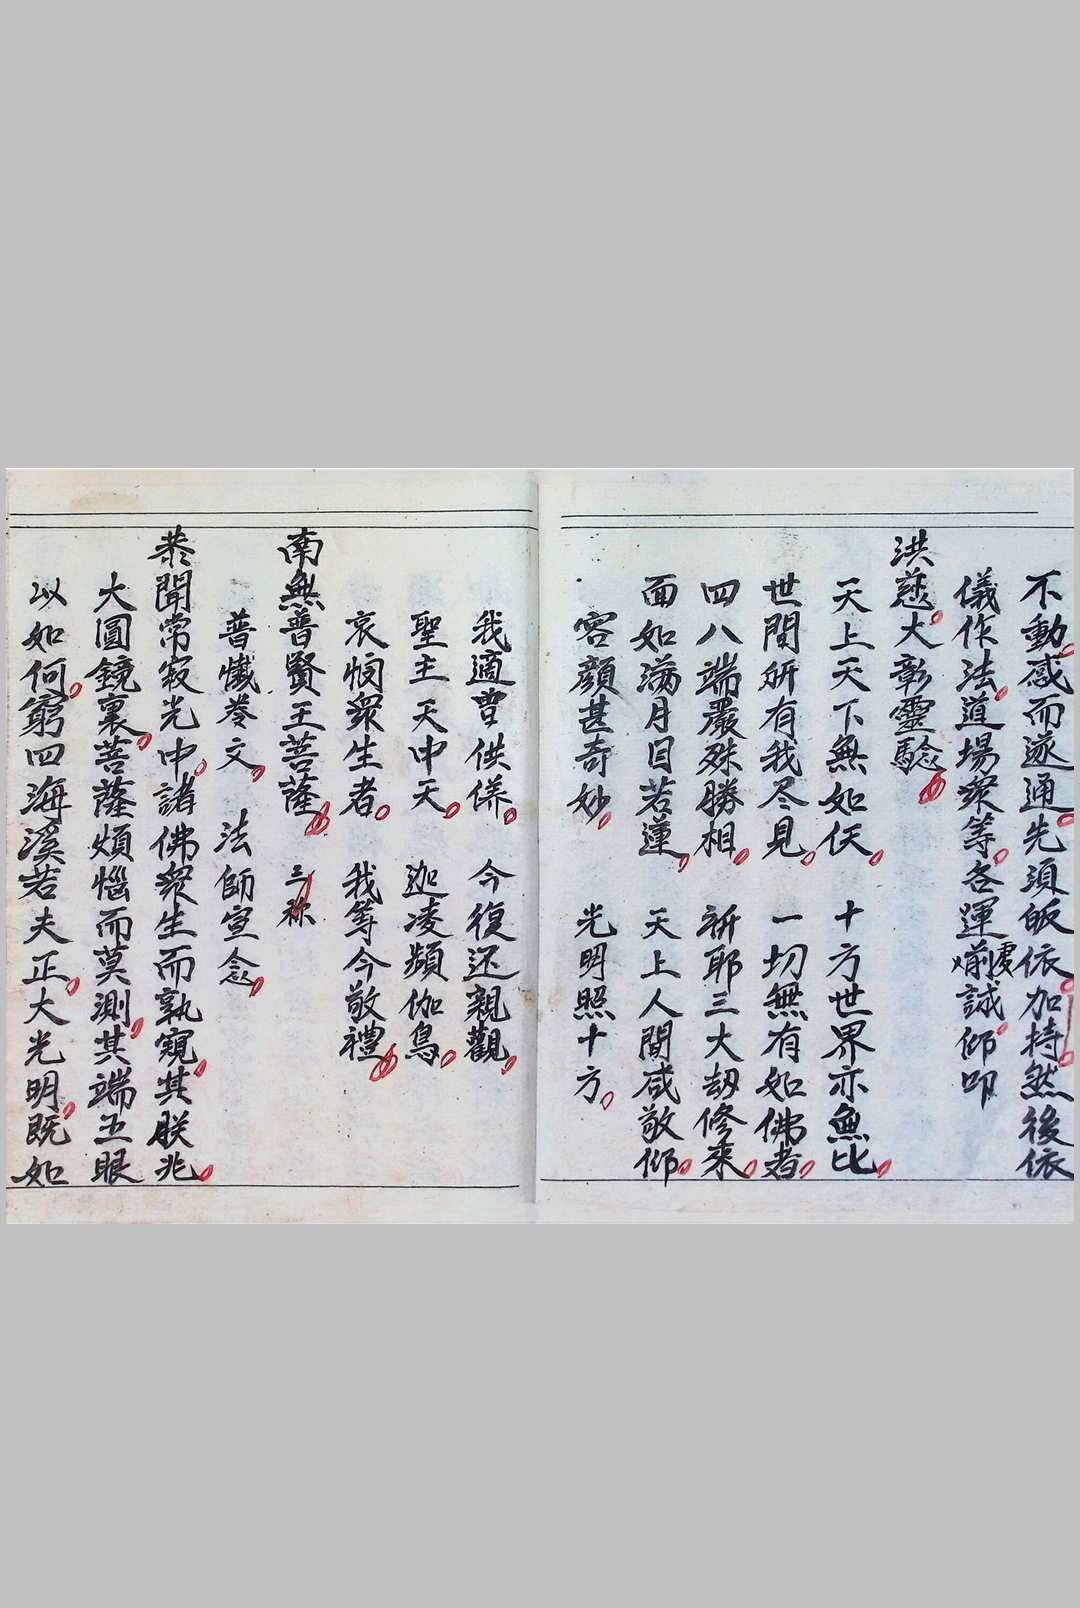 不動感而遂通先須皈依加持然後依
儀作法道場衆等各運虔誠仰叩
洪慈大彰靈驗
天上天下無如仸 十方世界亦無比
世間所有我尽見 一切無有如佛者
四八端嚴殊勝相 祈耶三大劫修来
面如滿月目若蓮 天上人間咸敬仰
容顔甚奇妙 光明照十方
我適曹供養 今復还親觀
聖主天中天 迦凌頻伽鳥
哀悯眾生者 我等今敬禮
南無普賢王菩薩 三称
普懺卷文 法師宣念
恭聞常寂光中諸佛衆生而孰窺其朕兆
大圓鏡裏菩薩煩惱而莫測其端五眼
以如何窮四海溪若夫正大光明既如